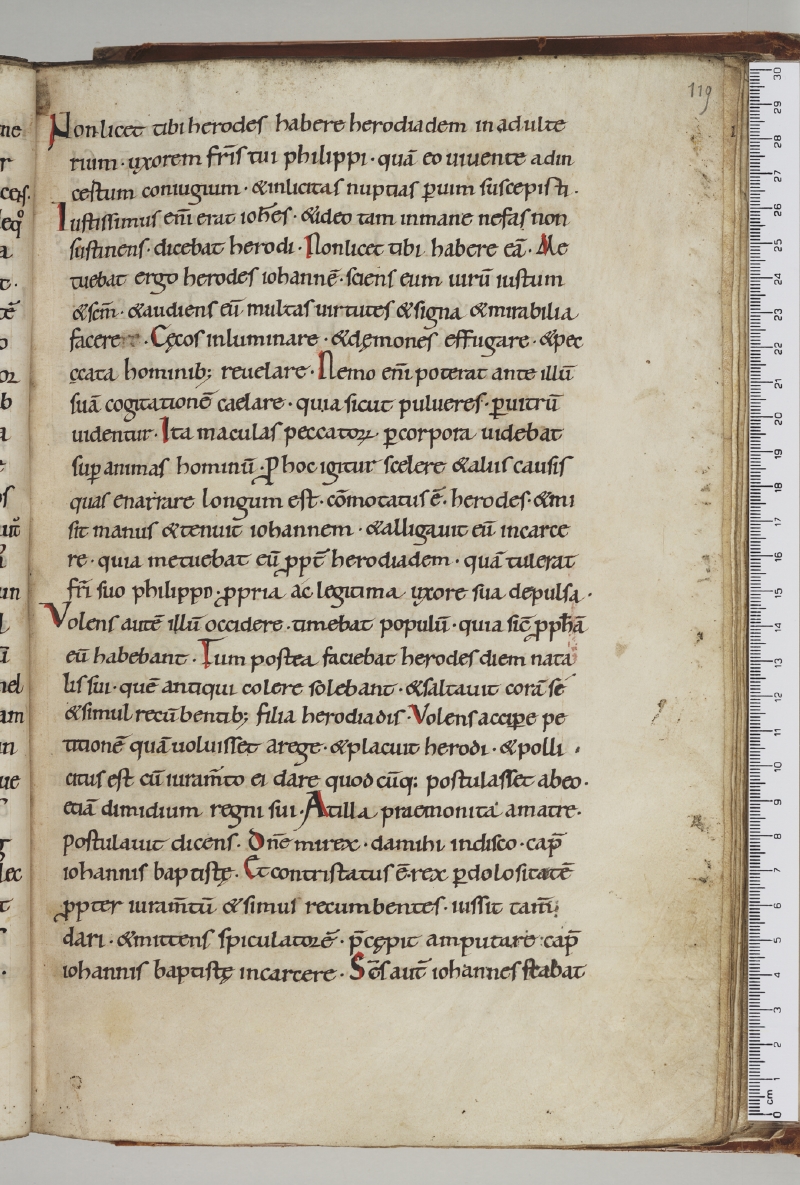 119
Non licet tibi herodes habere herodiadem in adulte
rium · uxorem fr̄is tui philippi · quā eo uiuente ad in
cestum coniugium · & inlicitas nuptias ꝑ uim suscepisti ·
Iustissimus eni̅ erat ioh̅es · & ideo tam inmane nefas non
sustinens · dicebat herodi · Non licet tibi habere eā · Me
tuebat ergo herodes iohannē · sciens eum uirū iustum
& sc̄m̄ · & audiens eū multas uirtutes & signa & mirabilia
facere · Cęcos inluminare · & dęmones effugare · & pec
ccata hominib; reuelare · Nemo eni̅ poterat ante illū
suā cogitationē caelare · quia sicut pulueres · ꝑ uitrū
uidentur · Ita maculas peccatoꝝ · ꝑ corpora uidebat
sup̱ animas hominū · P̱ hoc igitur scelere & aliis causis
quas enarrare longum est · cōmotatus ē · herodes · & mi
sit manus & tenuit iohannem · & alligauit eū in carce
re · quia metuebat eū ꝓpt̄ herodiadem · quā tulerat
fr̄i suo philippo · ꝓpria ac legitima uxore sua depulsa ·
Volens autē illū occidere · timebat populū · quia sic̄ ꝓph̄ā
eū habebant · Tum postea faciebat herodes diem nata
lis sui · quē antiqui colere solebant · & saltauit corā se
& simul recūbentib; filia herodiadis · Volens accipe̱ pe
titionē quā uoluisset a rege · & placuit herodi · & polli ·
citus est cū iuram̄to ei dare quodcūq; postulasset ab eo ·
etiā dimidium regni sui · At illa praemonita a matre ·
postulauit dicens · Dn̄e mi rex · da mihi in disco · cap̄
iohannis baptistę · Et contristatus ē · rex ꝑ dolositatē
ꝓpter iuram̄tū & simul recumbentes · iussit tam̄;
dari · & mittens spiculatorē · p̄cępit amputare cap̄
iohannis baptistę in carcere · Sc̄s aut̄ iohannes stabat